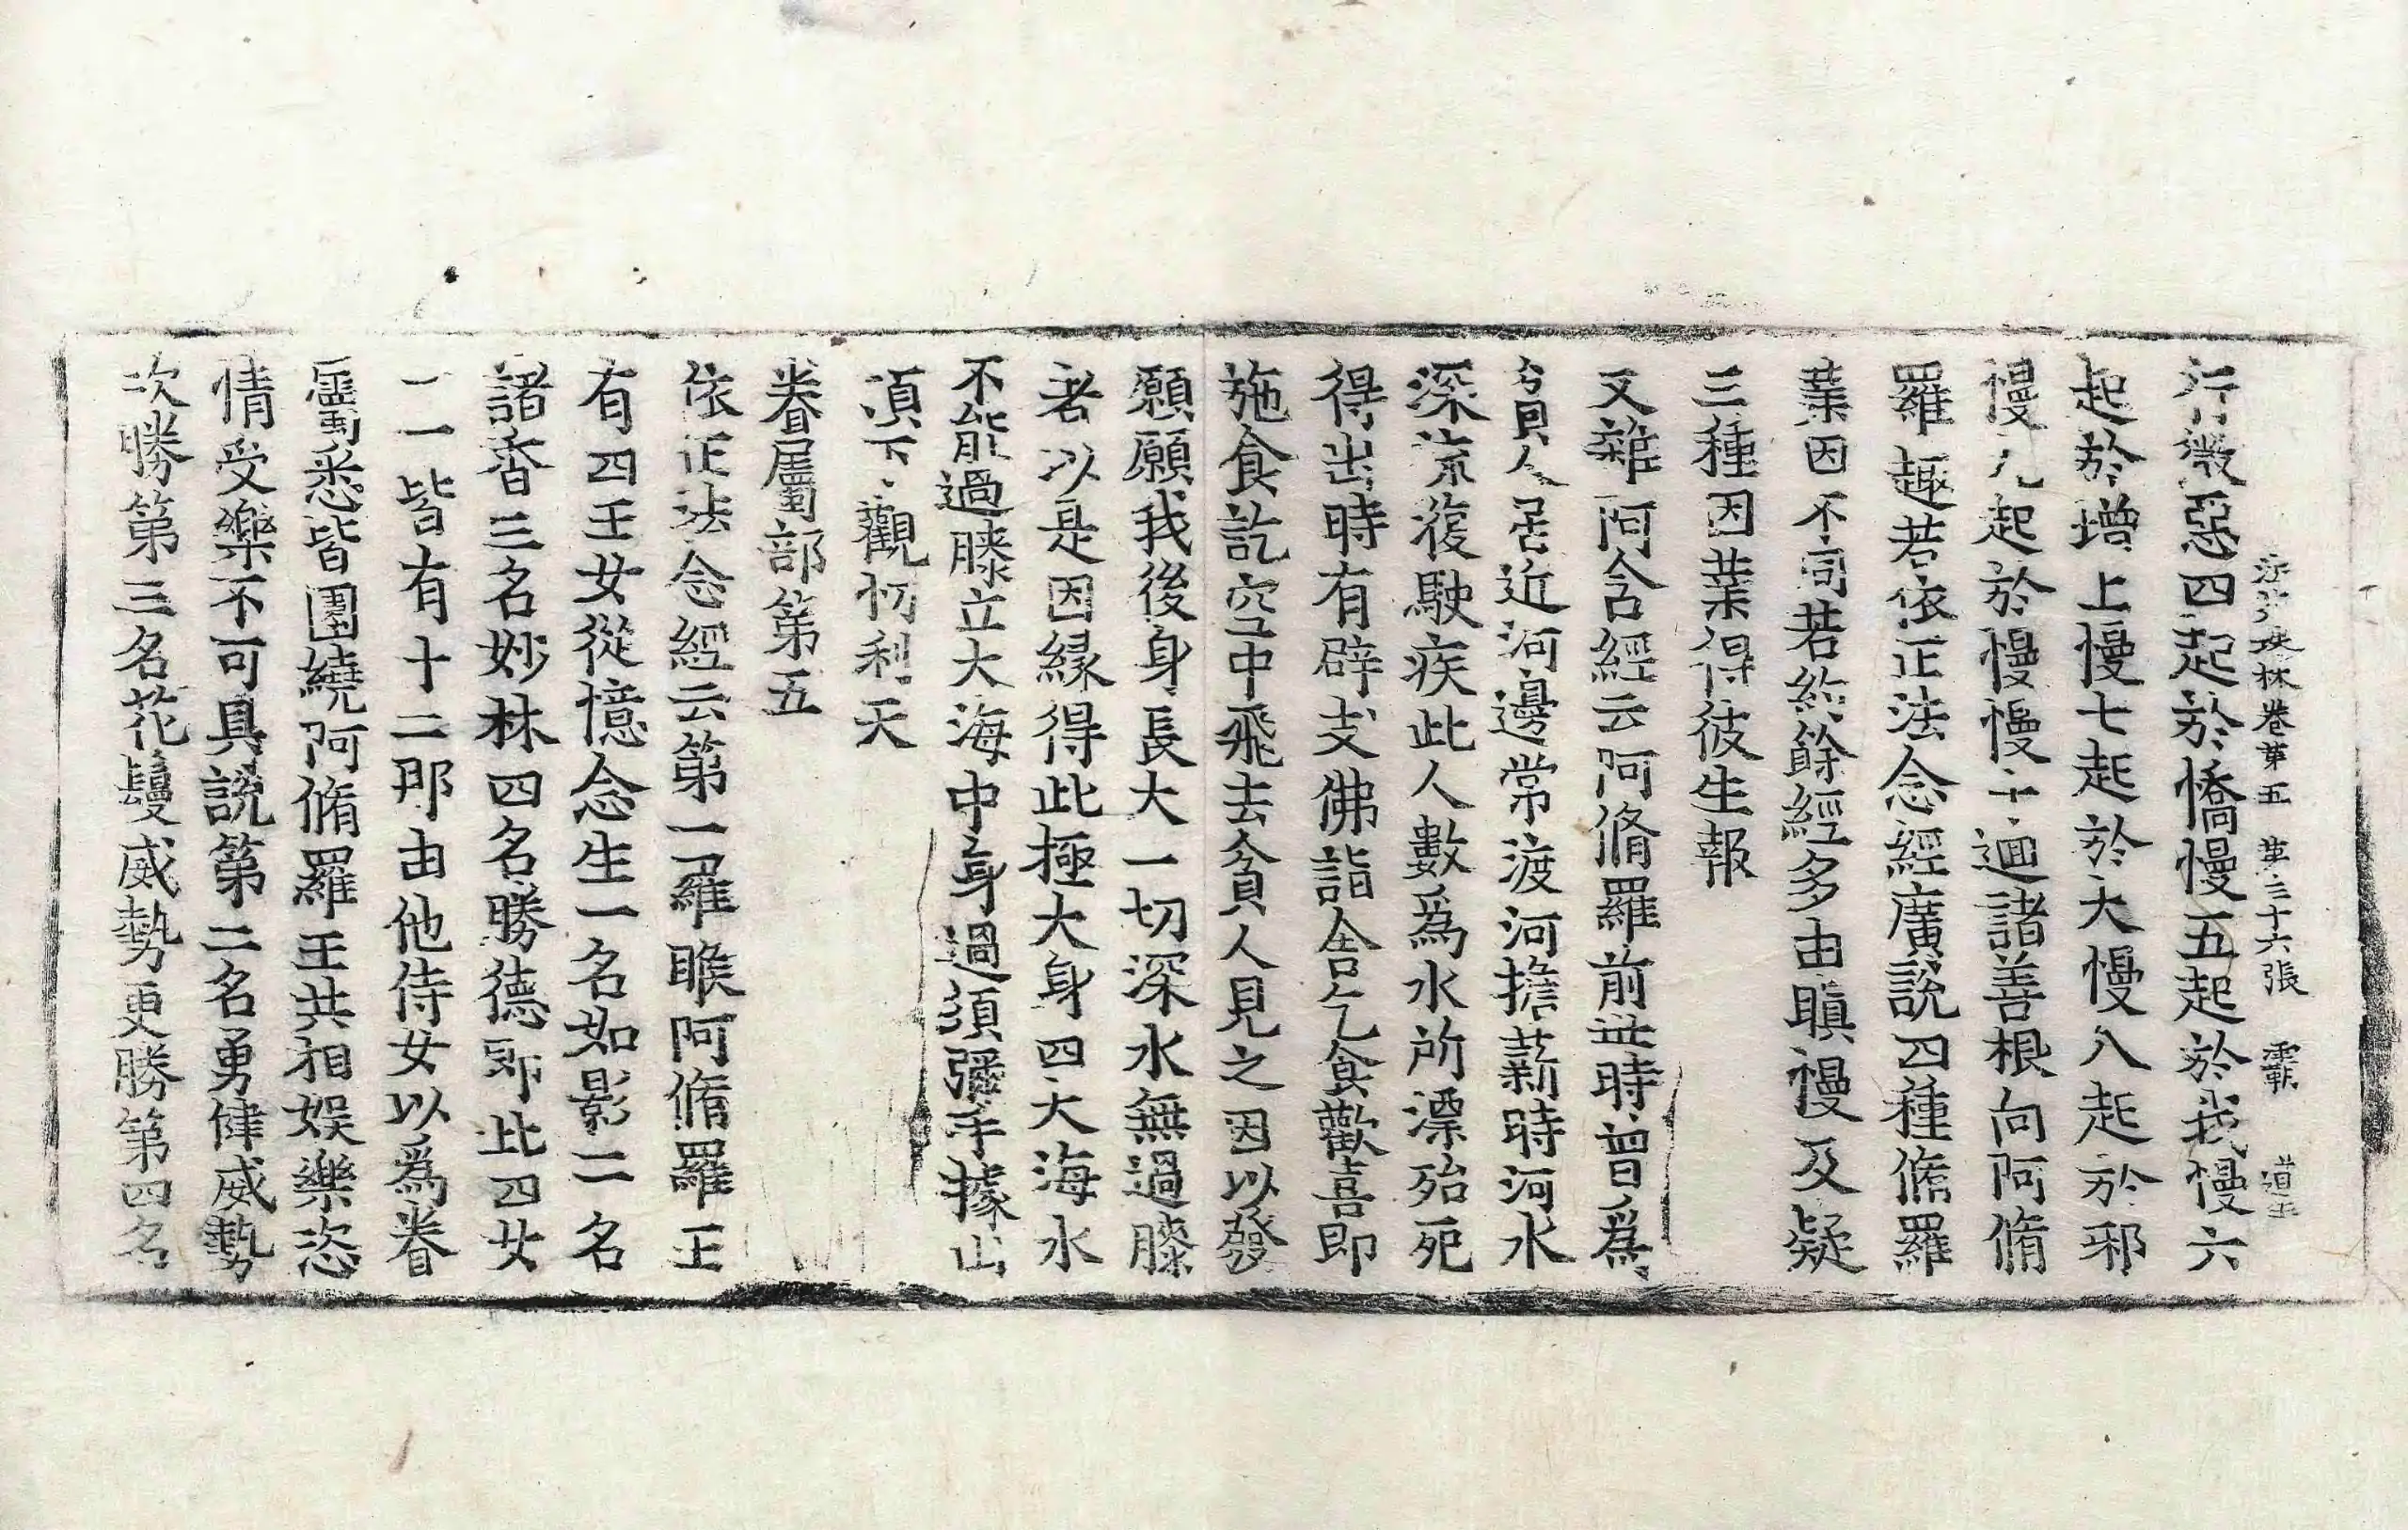 法苑珠林卷第五 第三十六張 霸 道玉
行微惡四起於憍慢五起於我慢六
起於增上慢七起於大慢八起於邪
慢九起於慢慢十迴諸善根向阿脩
羅趣若依正法念經廣說四種脩羅
業因不同若約餘經多由瞋慢及疑
三種因業得彼生報
又雜阿含經云阿脩羅前世時曾爲
貧人居近河邊常渡河擔薪時河水
深流復駛疾此人數爲水所漂殆死
得出時有辟支佛詣舍乞食歡喜即
施食訖空中飛去貧人見之因以發
願願我後身長大一切深水無過膝
者以是因緣得此極大身四大海水
不能過膝立大海中身過須彌手據山
頂下觀忉利天
眷屬部第五
依正法念經云第一羅睺阿脩羅王
有四玉女從憶念生一名如影二名
諸香三名妙林四名勝德即此四女
一一皆有十二那由他侍女以爲眷
屬悉皆圍繞阿脩羅王共相娛樂恣
情受樂不可具說第二名勇健威勢
次勝第三名花鬘威勢更勝第四名